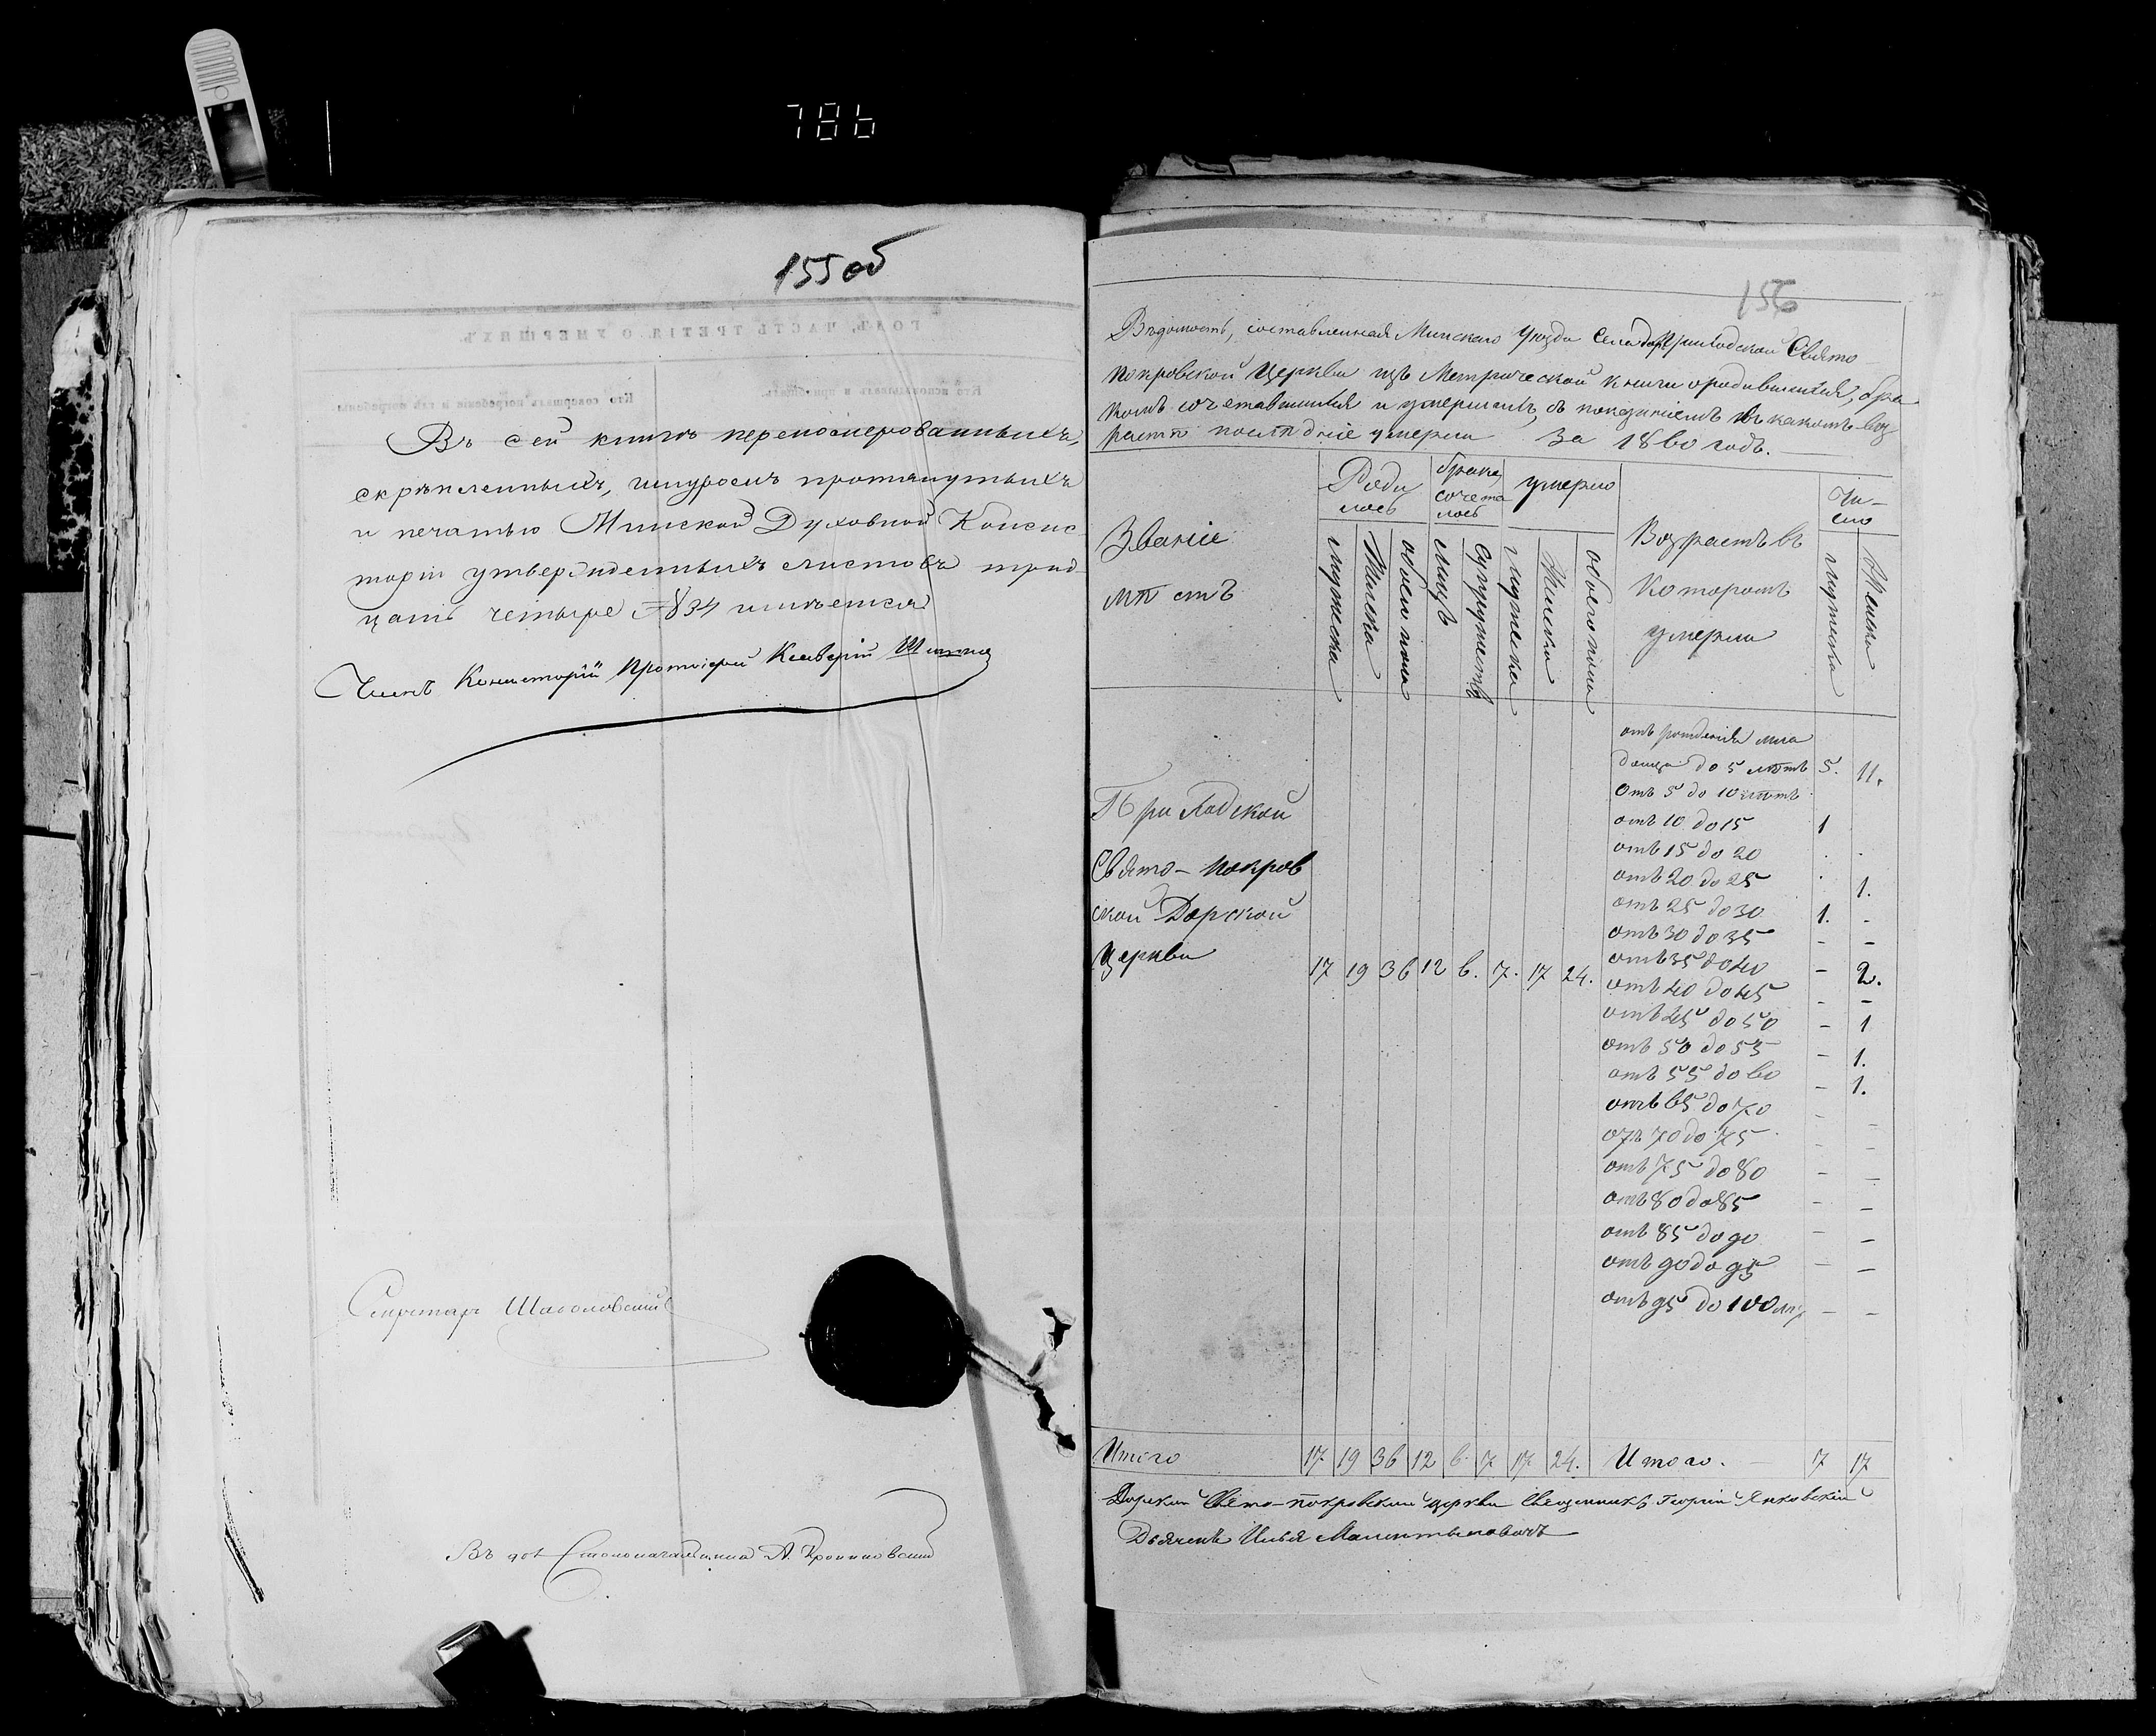 786
155 об
ГОДЪ, ЧАСТЬ ТРЕТІЯ, О УМЕРШИХЪ.
Кто исповѣдывалъ и пріобщалъ.
Кто совершалъ погребеніе и гдѣ погребены.
Въ сей книгѣ перенумерованныхъ,
скрѣпленныхъ, шнуромъ протянутыхъ
и печатью Минской Духовной Консис
торіи утвержденныхъ листовъ трид
цать четыре 34 имѣется
Членъ Консисторіи Протоіерей
Секретарь
Въ дол Столоначальника А.
156
Вѣдомость, составленная Минскаго Уѣзда Села Свято
Покровской Церкви изъ Метрической книги о родившихся, бра
комъ сочетавшихся и умершихъ, съ показаніемъ въ какомъ воз
растѣ послѣдніе умерли За 1860 годъ.
Званіе
мѣстъ
Роди
лось
брако
сочета
лось
умерло
Возрастъ въ
которомъ
умерли
Чи-
сло
мужеска
Женска
обоего пола
лицъ
супружествъ
мужеска
Женска
обоего пола
мужеска
Женска
отъ рожденія мла
денца до 5 лѣтъ 5. 11.
Отъ 5 до 10 лѣтъ
отъ 10 до 15 1
отъ 15 до 20 . .
отъ 20 до 25 . 1.
отъ 25 до 30 1. -
отъ 30 до 35 - -
отъ 35 до 40 - 2.
отъ 40 до 45 - -
отъ 45 до 50 - 1
отъ 50 до 55 - 1.
отъ 55 до 60 - 1.
отъ 65 до 70 - -
отъ 70 до 75 - -
отъ 75 до 80 - -
отъ 80 до 85 - -
отъ 85 до 90 - -
отъ 90 до 95 - -
отъ 95 до 100 - -
Свято-Покров
ской Дорской
Церкви 17 19 36 12 6. 7. 17 24.
Итого 17 19 36 12 6. 7 17 24. Итого. 7 17
Дорской Свято-Покровской церкви Священникъ Георгій Янковскій
Дьячекъ Илья